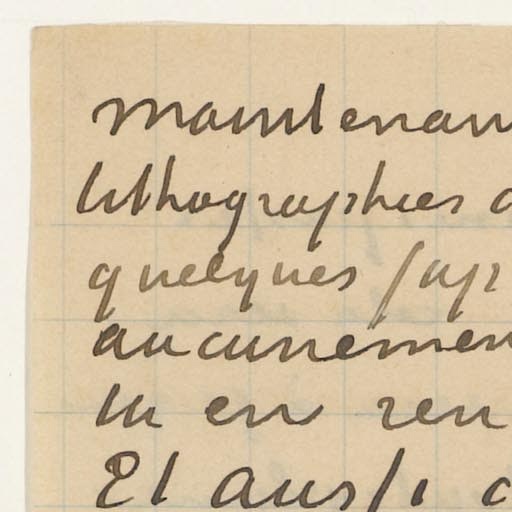 maintenan
lithographies d
quelques jap
aucunemen
tu en ren
Et aussi d